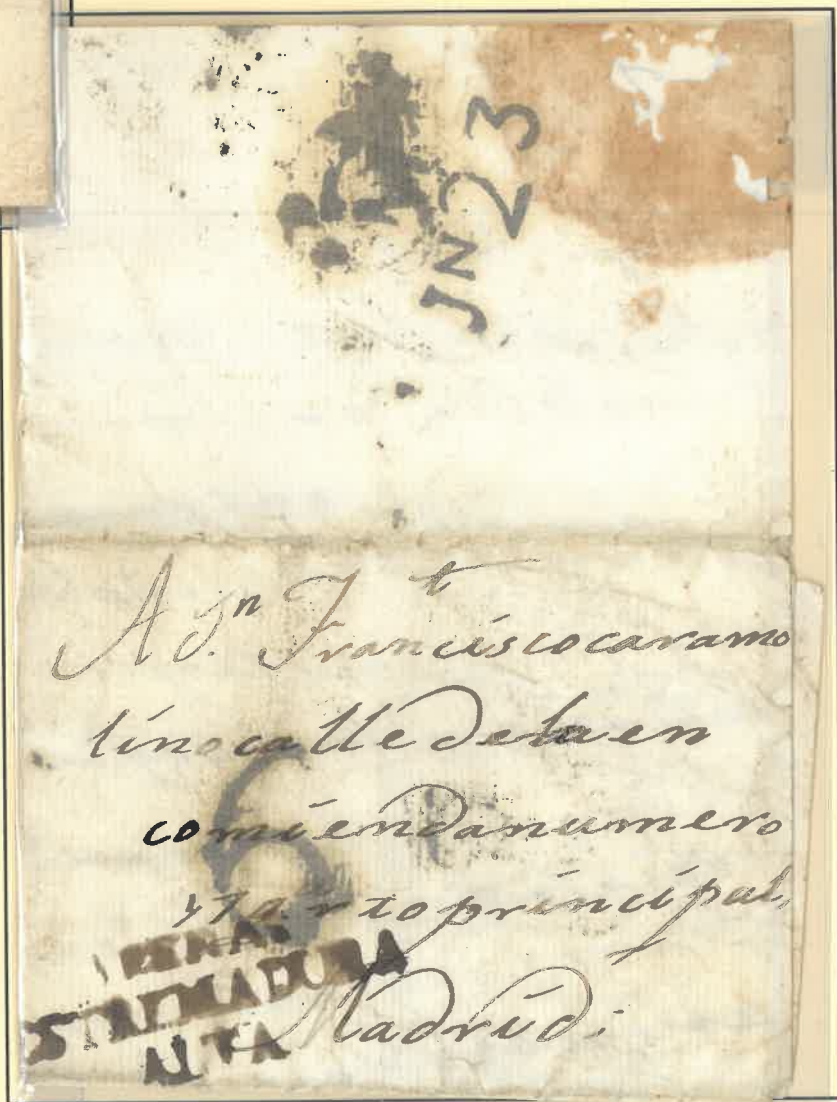 JN 23
A Dn. Francisco caramo
lino calle de la en
comienda numero
principal,
6
ESTREMADURA
ALTA
Madrid: